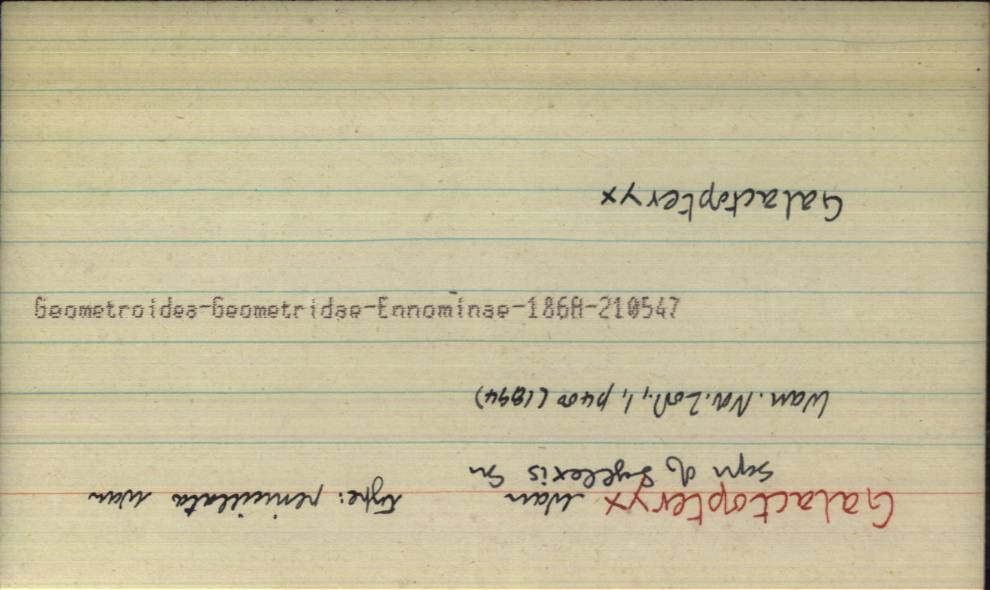 Galactopteryx Warr type: penicillata Warr
Syn of Syllexis Gn
Warr. Nov. Zool., 1, p400 (1894)
Geometroidea-Geometridae-Ennominae-186A-210547
Galactopteryx